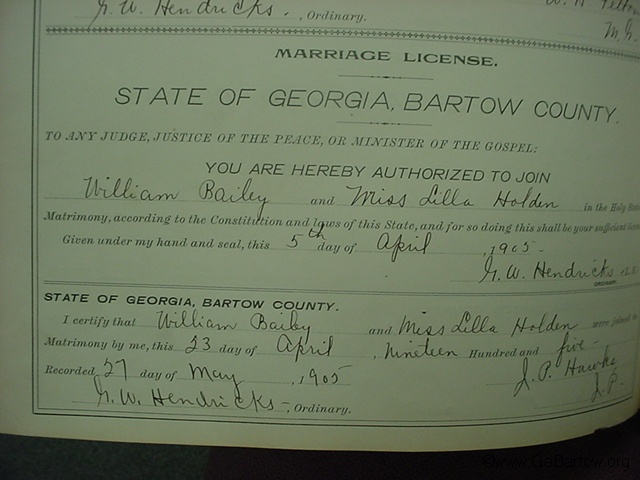 G. W. Hendricks, Ordinary.
MARRIAGE LICENSE.
STATE OF GEORGIA, BARTOW COUNTY.
TO ANY JUDGE, JUSTICE OF THE PEACE, OR MINISTER OF THE GOSPEL:
YOU ARE HEREBY AUTHORIZED TO JOIN
William Bailey and Miss Lilla Holden in the Holy
Matrimony, according to the Constitution and laws of this State, and for so doing this shall be your sufficient
Given under my hand and seal, this 5th day of April, 1905
G. W. Hendricks
ORDINARY.
STATE OF GEORGIA, BARTOW COUNTY.
I certify that William Bailey and Miss Lilla Holden were joined in
Matrimony by me, this 23 day of April, Nineteen Hundred and five
J. P. Hawks
J. P.
Recorded 27 day of May, 1905
G. W. Hendricks, Ordinary.
©www.GaBartow.org